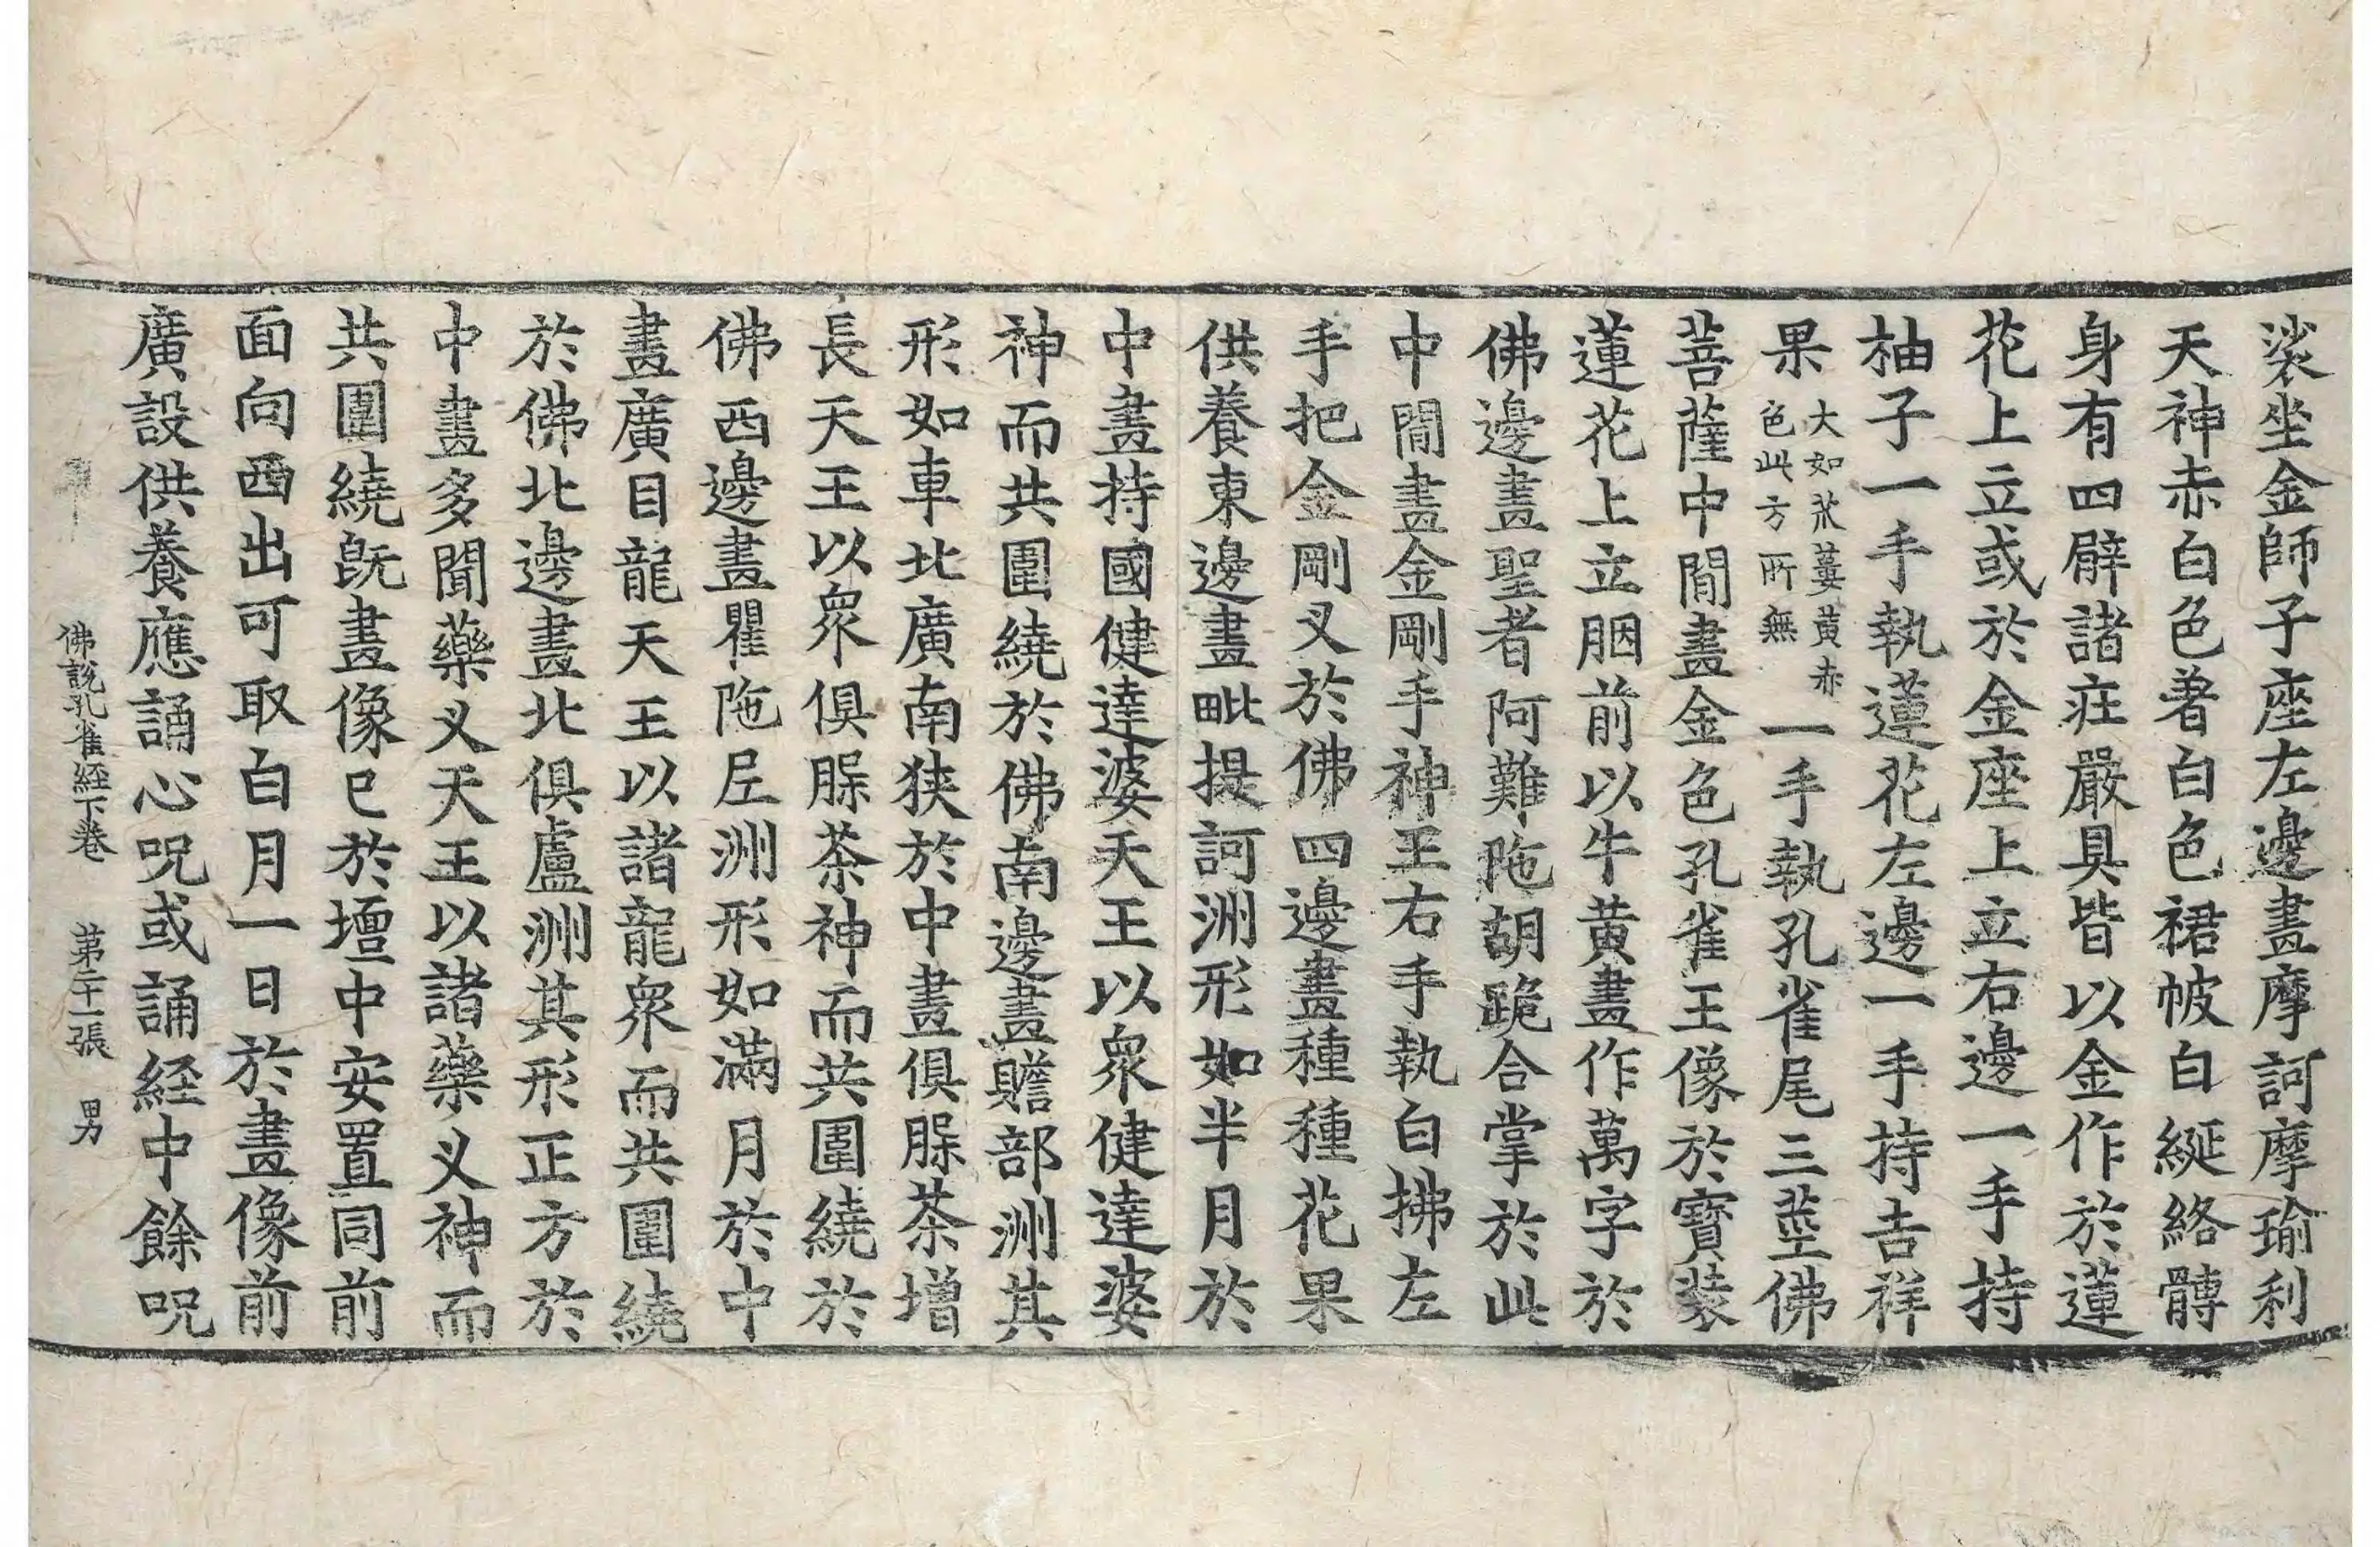 裟坐金師子座左邊畫摩訶摩瑜利
天神赤白色著白色裙帔白綖絡髆
身有四臂諸莊嚴具皆以金作於蓮
花上立或於金座上立右邊一手持
柚子一手執蓮花左邊一手持吉祥
果大如苽蔞黃赤色此方所無一手執孔雀尾三莖佛
菩薩中閒畫金色孔雀王像於寶裝
蓮花上立胭前以牛黃畫作萬字於
佛邊畫聖者阿難陁胡跪合掌於此
中閒畫金剛手神王右手執白拂左
手把金剛叉於佛四邊畫種種花果
供養東邊畫毗提訶洲形如半月於
中畫持國健達婆天王以衆健達婆
神而共圍繞於佛南邊畫贍部洲其
形如車北廣南狹於中畫俱腂荼增
長天王以衆俱腂荼神而共圍繞於
佛西邊畫瞿陁尼洲形如滿月於中
畫廣目龍天王以諸龍衆而共圍繞
於佛北邊畫北俱盧洲其形正方於
中畫多聞藥叉天王以諸藥叉神而
共圍繞旣畫像已於壇中安置同前
面向西出可取白月一日於畫像前
廣設供養應誦心呪或誦経中餘呪
佛說孔雀経下卷 第二十一張 男